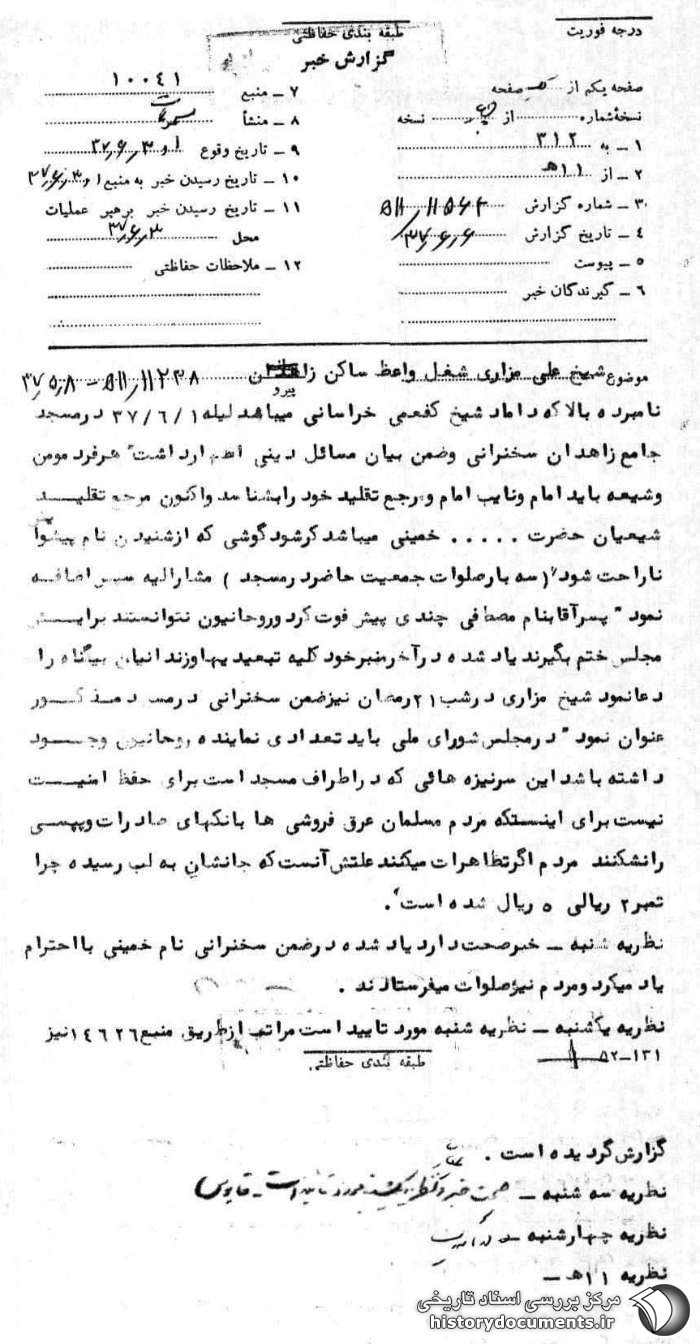 درجه فوریت
طبقه بندی حفاظتی
گزارش خبر
صفحه یکم از صفحه
نسخهٔ شماره از نسخه
۱ ـ به ۳۱۲
۲ ـ از ۱۱ه
۳ ـ شماره گزارش
۴ ـ تاریخ گزارش ۳۷/۶/۶
۵ ـ پیوست
۶ ـ گیرندگان خبر
۷ ـ منبع ۱۰۰۴۱
۸ ـ منشأ
۹ ـ تاریخ وقوع ۱ و ۳۷/۶/۳
۱۰ ـ تاریخ رسیدن خبر به منبع ۱ و ۳۷/۶/۳
۱۱ ـ تاریخ رسیدن خبر برهبر عملیات
محل ۳۷/۶/۳
۱۲ ـ ملاحظات حفاظتی
موضوع شیخ علی مزاری شغل واعظ ساکن زاهدان
پیرو ۱۱۲۳۸/ه۱۱ – ۳۷/۵/۸
نامبرده بالا که داماد شیخ کفعمی خراسانی میباشد لیله ۳۷/۶/۱ در مسجد
جامع زاهدان سخنرانی وضمن بیان مسائل دینی اظهار داشت " هر فرد مومن
وشیعه باید امام ونایب امام ومرجع تقلید خود را بشناسد واکنون مرجع تقلیـد
شیعیان حضرت ..... خمینی میباشد کر شود گوشی که از شنیدن نام پیشوا
ناراحت شود " (سه بار صلوات جمعیت حاضر در مسجد ) مشارالیه سپس اضافـه
نمود " پسر آقا بنام مصطفی چندی پیش فوت کرد وروحانیون نتوانستند برایـش
مجلس ختم بگیرند یاد شده در آخر منبر خود کلیه تبعید یها وزندانیان بیگناه را
دعا نمود شیخ مزاری در شب ۲۱ رمضان نیز ضمن سخنرانی در مسجد مذکـور
عنوان نمود " در مجلس شورای ملی باید تعدادی نماینده روحانیون وجـود
داشته باشد این سرنیزه هائی که در اطراف مسجد است برای حفظ امنیـت
نیست برای اینستکه مردم مسلمان عرق فروشی ها بانکهای صادرات وپپسی
رانشکنند مردم اگر تظاهرات میکنند علتش آنست که جانشان به لب رسیده چرا
تمبر ۲ ریالی ۵ ریال شده است ".
نظریه شنبه ـ خبر صحت دارد یاد شده در ضمن سخنرانی نام خمینی با احترام
یاد میکرد ومردم نیز صلوات میفرستادند .
نظریه یکشنبه ـ نظریه شنبه مورد تایید است مراتب از طریق منبع ۱۴۶۲۶ نیز
۵۲–۱۳۱
طبقه بندی حفاظتی
گزارش گردیده است .
نظریه سه شنبه ـ صحت خبر و نظریه یکشنبه مورد تأیید است ـ
نظریه چهارشنبه ـ
نظریه ۱۱ه ـ
مرکز بررسی اسناد تاریخی
historydocuments.ir